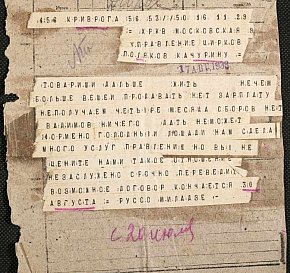 КРИВРОГА 56 53/750 16 11 29
КРИВ МОСКОВСКАЯ 8
УПРАВЛЕНИЕ ЦИРКОВ
ПОЛЯКОВ КАЧУРИНУ
ТОВАРИЩИ ДАЛЬШЕ ЖИТЬ НЕЧЕМ
БОЛЬШЕ ВЕЩЕЙ ПРОДАВАТЬ НЕТ ЗАРПЛАТУ
НЕПОЛУЧАЕМ ЧЕТЫРЕ МЕСЯЦА СБОРОВ НЕТ
ВАДИМОВ НИЧЕГО ДАТЬ НЕМОЖЕТ
КОРМИТЬ ГОЛОДНЫМИ ЛОШАДИ НАМ СДЕЛА
МНОГО УСЛУГ ПРАВЛЕНИЮ НО ВЫ НЕ
ЦЕНИТЕ НАМИ ТАКОЕ ОТНОШЕНИЕ
НЕЗАСЛУЖЕНО СРОЧНО ПЕРЕВЕДИТЕ
ДОГОВОР КОНЧАЕТСЯ 30
АВГУСТА РУССО МИЛАДЗЕ
с 20 июля